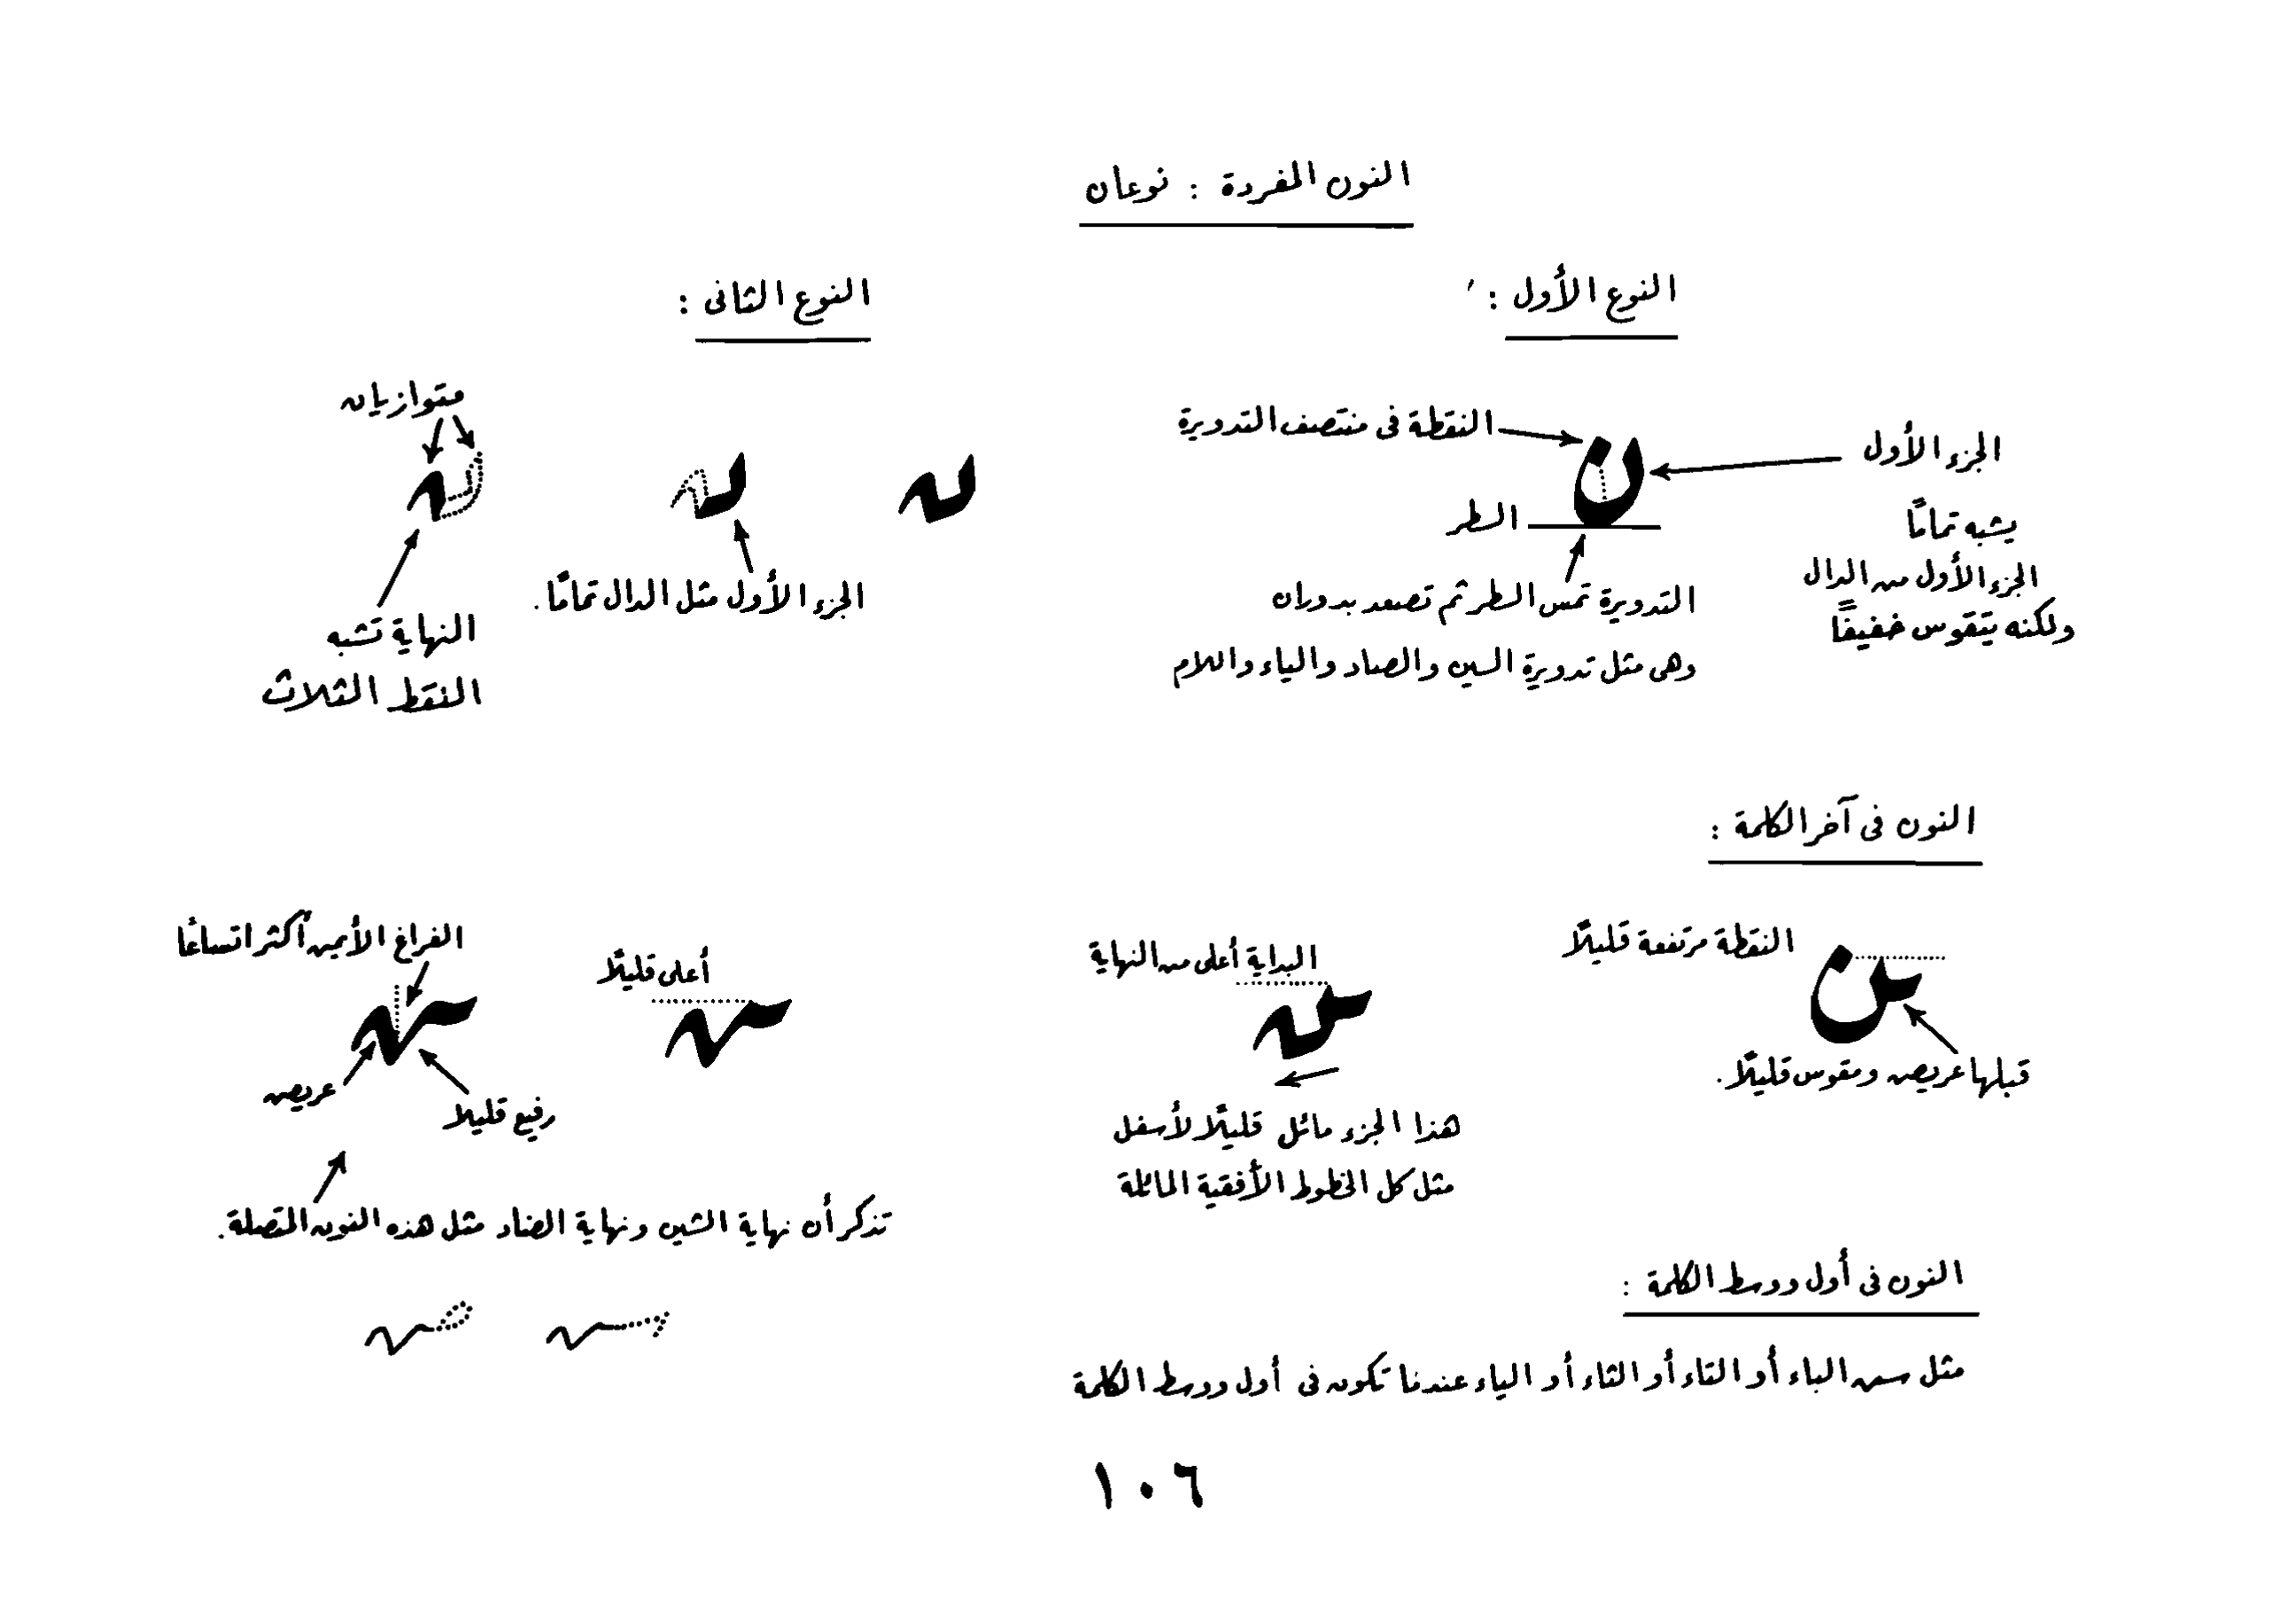 النون المفردة : نوعان
النوع الأول :
النقطة فى منتصف التدويرة
الجزء الأول
يشبه تمامًا
الجزء الأول من الدال
ولكنه يتقوس خفيفًا
السطر
التدويرة تمس السطر ثم تصعد بدوران
وهى مثل تدويرة السين والصاد والياء واللام
ن
النوع الثانى :
الجزء الأول مثل الدال تمامًا.
متوازيان
النهاية تشبه
النقط الثلاث
النون فى آخر الكلمة :
النقطة مرتفعة قليلًا
قبلها عريض ومقوس قليلًا.
البداية أعلى من النهاية
هذا الجزء مائل قليلًا لأسفل
مثل كل الخطوط الأفقية المائلة
أعلى قليلًا
الفراغ الأيمن أكثر اتساعًا
عريض
رفيع قليلا
تذكر أن نهاية الشين ونهاية الضاد مثل هذه النون المتصلة.
النون فى أول ووسط الكلمة :
مثل سن الباء أو التاء أو الثاء أو الياء عندما تكون فى أول ووسط الكلمة
١٠٦